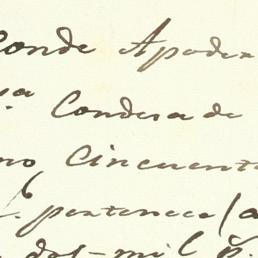 Conde Apoder
s.ª Condesa de
no, Cincuenta
pertenece (a
dos-mil p.